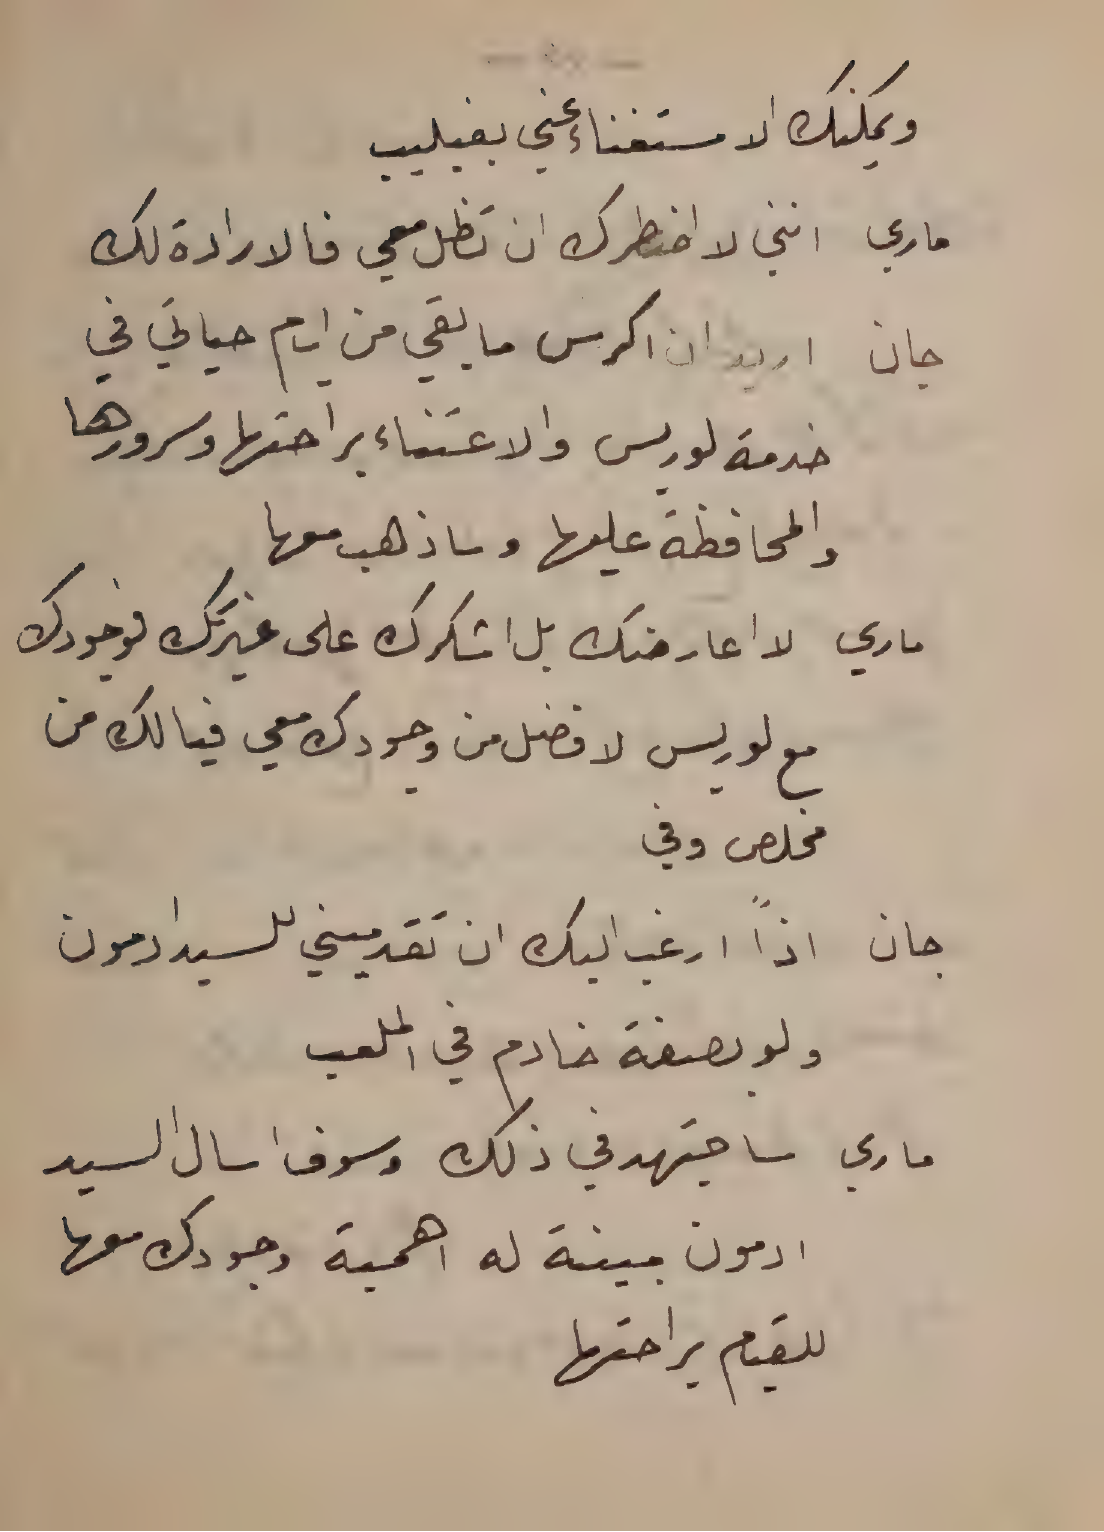 ويمكنك الاستغناء عني بفيليب
ماري انني لا اضطرك ان تظل معي فالارادة لك
جان اريد ان اكرس ما بقي من ايام حياتي في
خدمة لوريس والاعتناء براحتها وسرورها
والمحافظة عليها وساذهب معها
ماري لا اعارضك بل اشكرك على غيرتك فوجودك
مع لوريس لافضل من وجودك معي فيالك من
مخلص وفي
جان اذاً ارغب اليك ان تقدميني للسيد ادمون
ولو بصفة خادم في الملعب
ماري ساجتهد في ذلك وسوف اسال السيد
ادمون مبينة له اهمية وجودك معها
للقيام براحتها